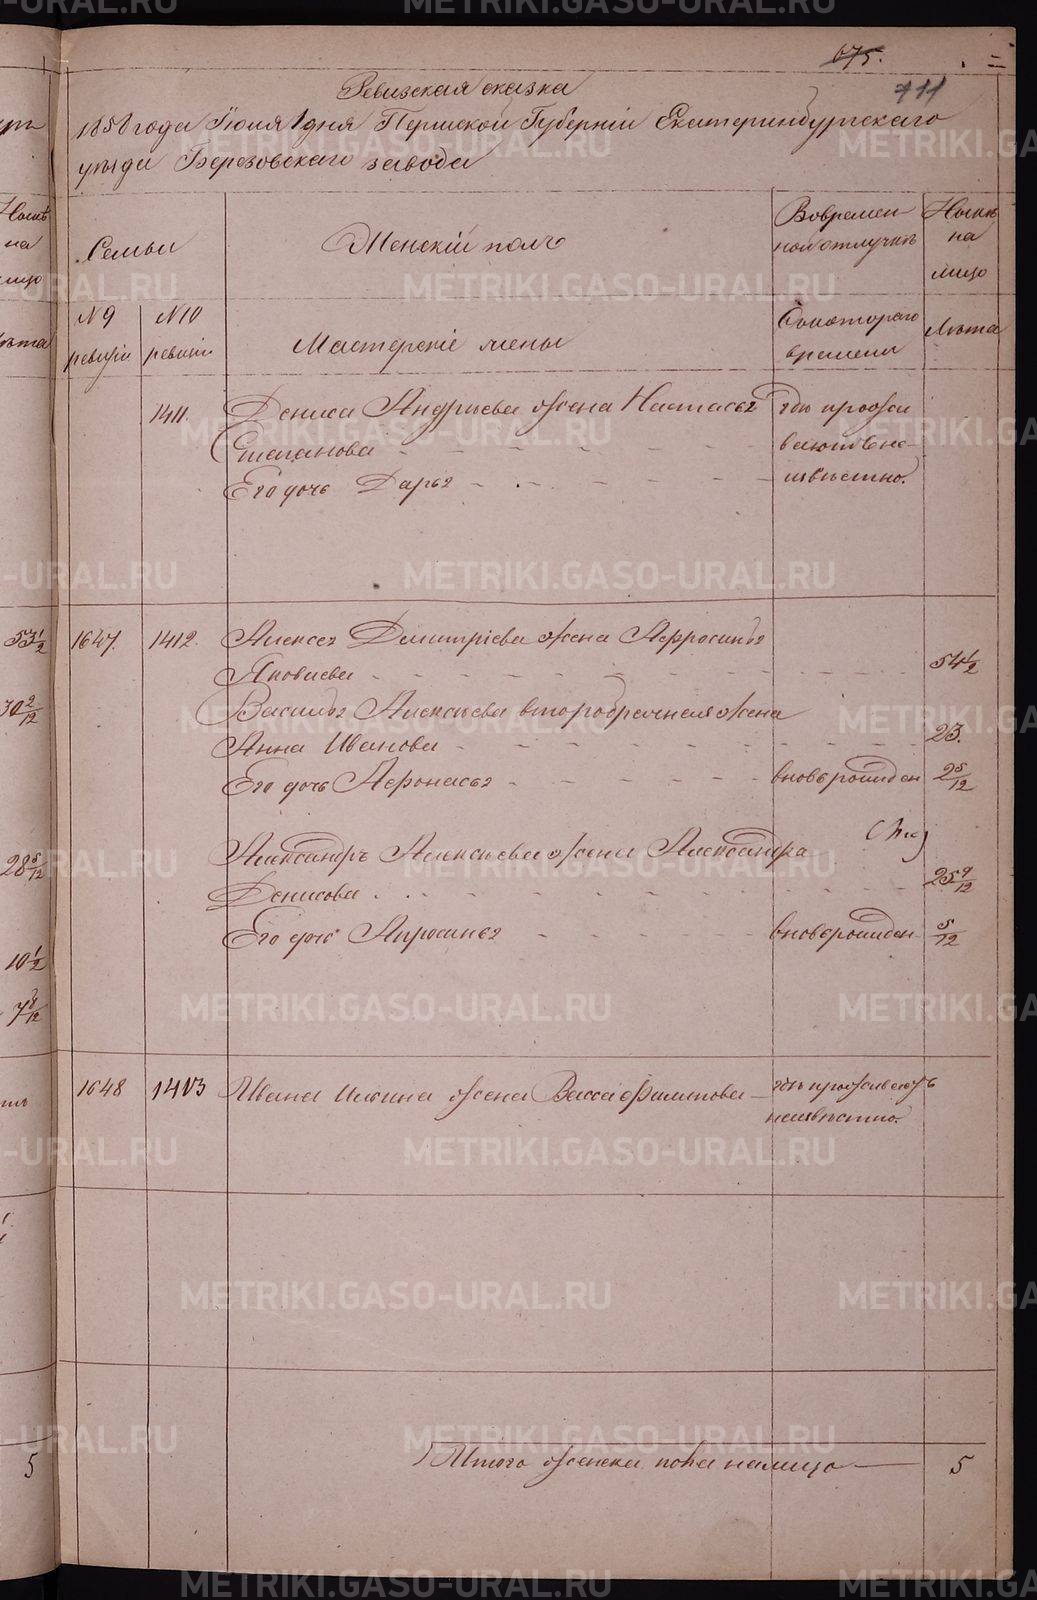 675.
711
Ревизская сказка
1858 года Iюля 1 дня Пермской Губернiи Екатеринбургскаго
уезда Березовскаго завода
Семьи
Женскiй полъ
Вовремен
ной отлучкѣ
Нынѣ
на
лицо
№ 9
ревизiи
№ 10
ревизiи
Мастерскiе жены
Съ котораго
времени
Лѣта
1411.
Дениса Андрѣева жена Настасья
Степанова
Его дочь Дарья
гдѣ прожи
ваютъ не-
извѣстно.
1647.
1412.
Алексея Дмитрiева жена Афросинья
Яковлева
54 1/2
Василья Алексѣева второбрачная жена
Анна Иванова
23.
Его дочь Афонасья
вновьрожден
2 5/12
Александръ Алексѣева жена Александра
Денисова
25 9/12
Его дочь Апросинья
вновьрожден
5/12
1648
1413
Ивана Ильина жена Васса Филипова
гдѣ проживаютъ
неизвѣстно.
Итого женска пола налицо
5
53 1/2
30 2/12
28 5/12
10 1/2
7 8/12
5
METRIKI.GASO-URAL.RU